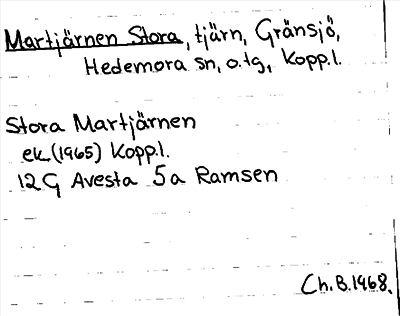 Martjärnen Stora, tjärn, Gränsjö,
Hedemora sn, o. tg, Kopp. l.
Stora Martjärnen
ek (1965) Kopp. l.
12 G Avesta 5a Ramsen
Ch. B. 1968.